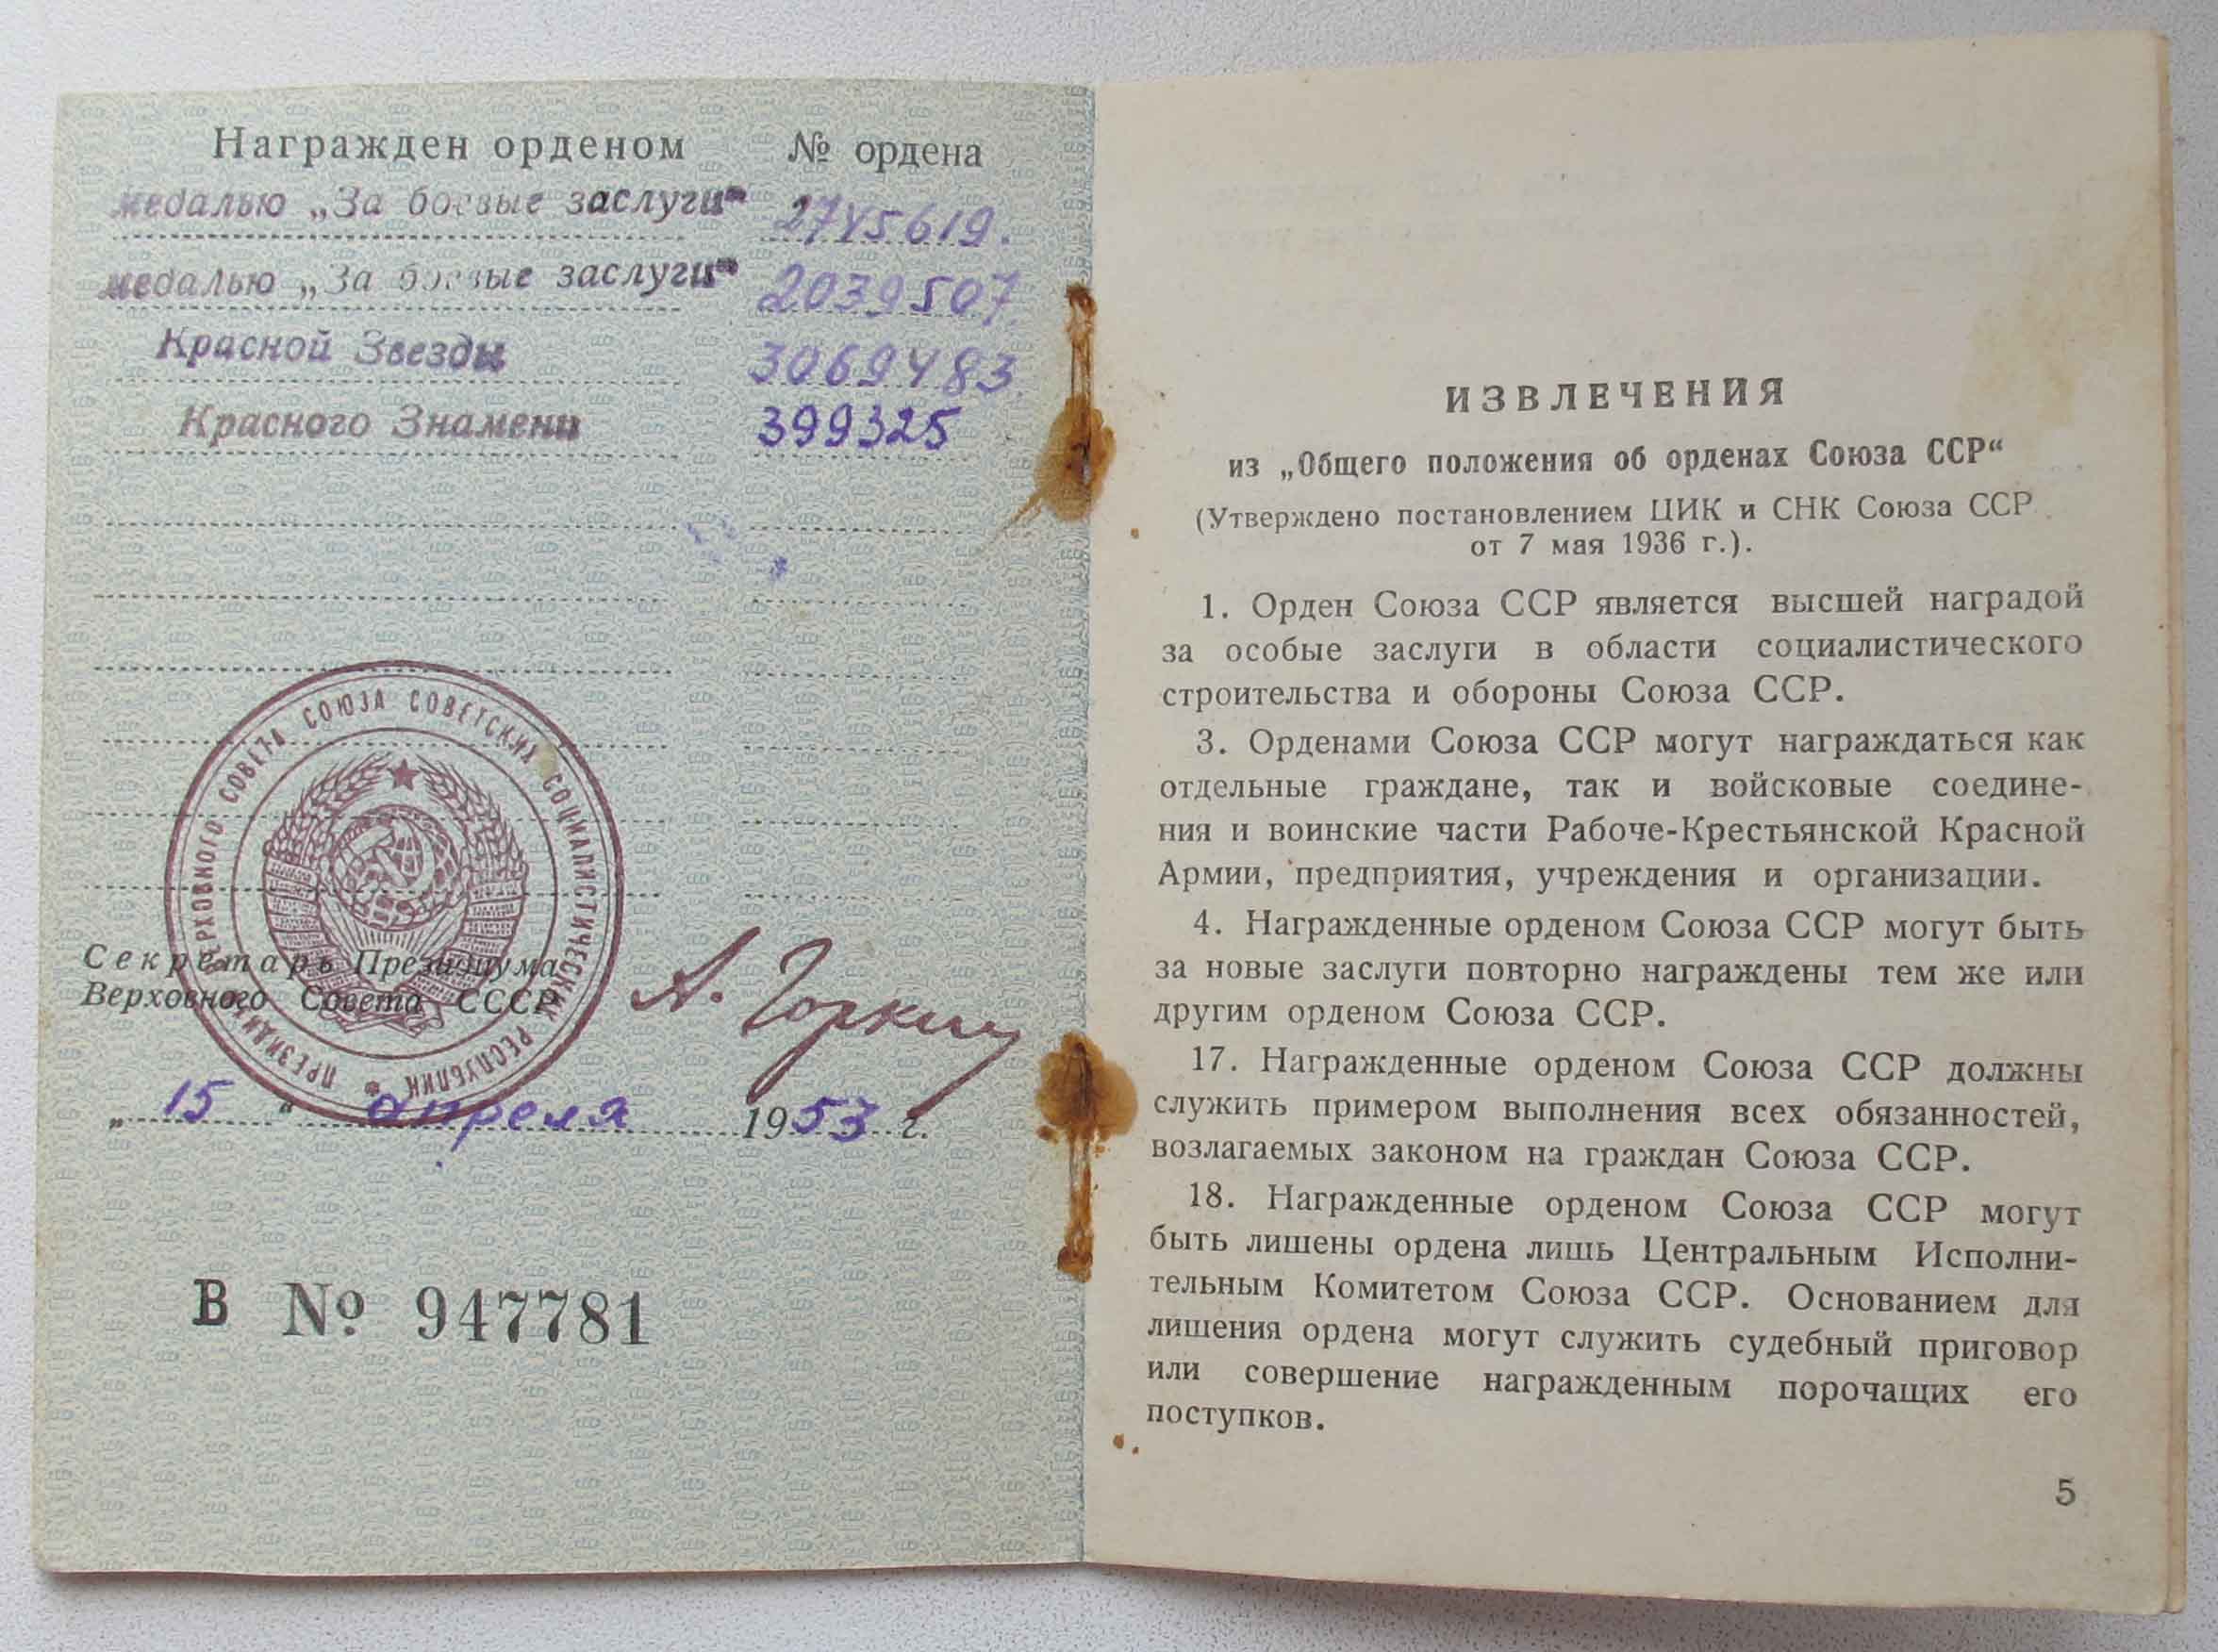 Награжден орденом № ордена
медалью „За боевые заслуги“ 2745619.
медалью „За боевые заслуги“ 2039507
Красной Звезды 3069483
Красного Знамени 399325
ПРЕЗИДИУМ ВЕРХОВНОГО СОВЕТА СОЮЗА СОВЕТСКИХ СОЦИАЛИСТИЧЕСКИХ РЕСПУБЛИК
Секретарь Президиума
Верховного Совета СССР А. Горкин
„ 15 “ апреля 1953 г.
В № 947781
ИЗВЛЕЧЕНИЯ
из „Общего положения об орденах Союза ССР“
(Утверждено постановлением ЦИК и СНК Союза ССР
от 7 мая 1936 г.).
1. Орден Союза ССР является высшей наградой
за особые заслуги в области социалистического
строительства и обороны Союза ССР.
3. Орденами Союза ССР могут награждаться как
отдельные граждане, так и войсковые соедине-
ния и воинские части Рабоче-Крестьянской Красной
Армии, предприятия, учреждения и организации.
4. Награжденные орденом Союза ССР могут быть
за новые заслуги повторно награждены тем же или
другим орденом Союза ССР.
17. Награжденные орденом Союза ССР должны
служить примером выполнения всех обязанностей,
возлагаемых законом на граждан Союза ССР.
18. Награжденные орденом Союза ССР могут
быть лишены ордена лишь Центральным Исполни-
тельным Комитетом Союза ССР. Основанием для
лишения ордена могут служить судебный приговор
или совершение награжденным порочащих его
поступков.
5